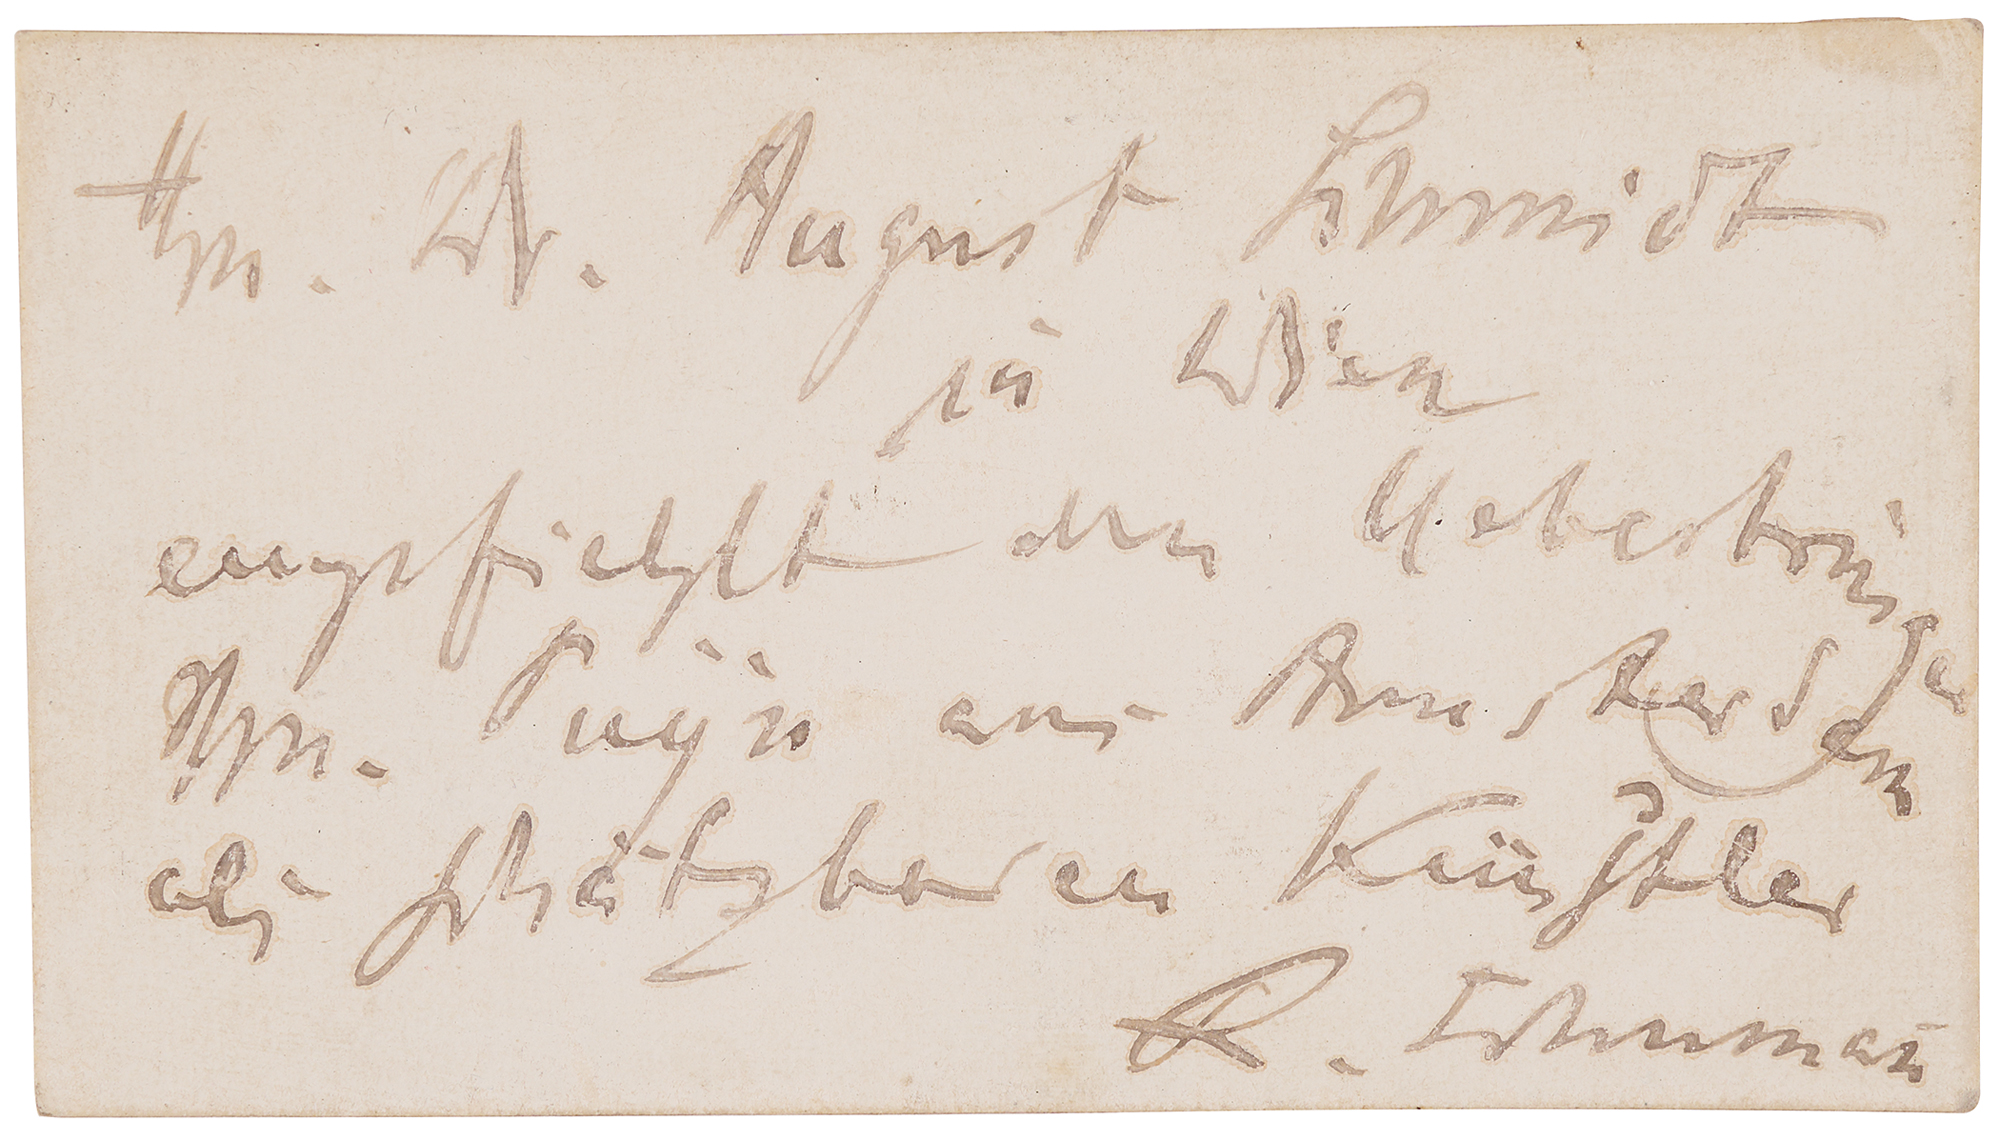 Hrn. Dr. August Schmidt
in Wien
empfiehlt den Ueberbringer
Hrn. aus Amsterdam
als schätzbaren Künstler
R. Schumañ